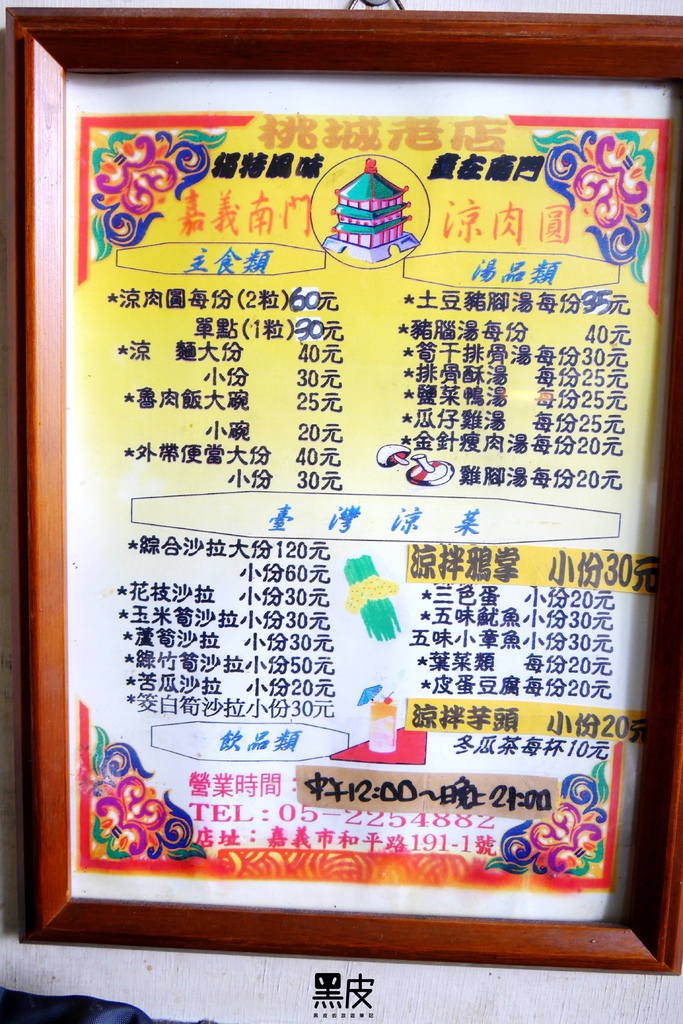 桃城老店
獨特風味 盡在南門
嘉義南門 涼肉圓
主食類
*涼肉圓每份(2粒)60元
單點(1粒)30元
*涼 麵大份 40元
小份 30元
*魯肉飯大碗 25元
小碗 20元
*外帶便當大份 40元
小份 30元
湯品類
*土豆豬腳湯每份35元
*豬腦湯每份 40元
*筍干排骨湯每份30元
*排骨酥湯 每份25元
*鹽菜鴨湯 每份25元
*瓜仔雞湯 每份25元
*金針瘦肉湯每份20元
雞腳湯每份20元
臺灣涼菜
*綜合沙拉大份120元
小份60元
*花枝沙拉 小份30元
*玉米筍沙拉小份30元
*蘆筍沙拉 小份30元
*綠竹筍沙拉小份50元
*苦瓜沙拉 小份20元
*筊白筍沙拉小份30元
涼拌鴉掌 小份30元
*三色蛋 小份20元
*五味魷魚小份30元
五味小章魚小份30元
*葉菜類 每份20元
*皮蛋豆腐每份20元
涼拌芋頭 小份20元
飲品類
冬瓜茶每杯10元
營業時間:中午12:00~晚上21:00
TEL:05-2254882
店址:嘉義市和平路191-1號
黑皮